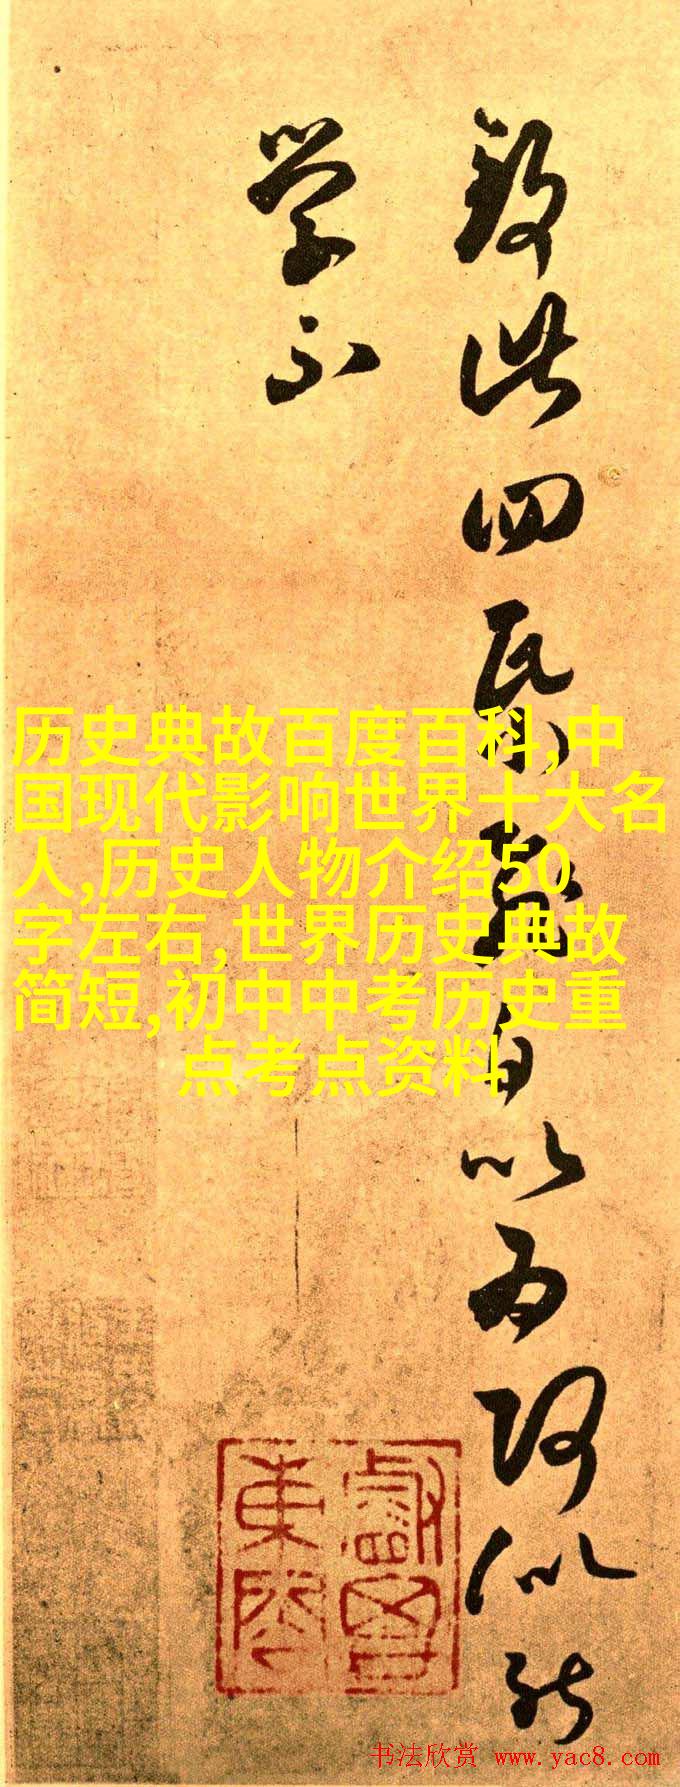 此四民自以为似能
学不
历史典故百度百科,中
国现代影响世界十大名
人,历史人物介绍50
字左右,世界历史典故
简短,初中中考历史重
点考点资料
书法欣赏 www.yac8.com